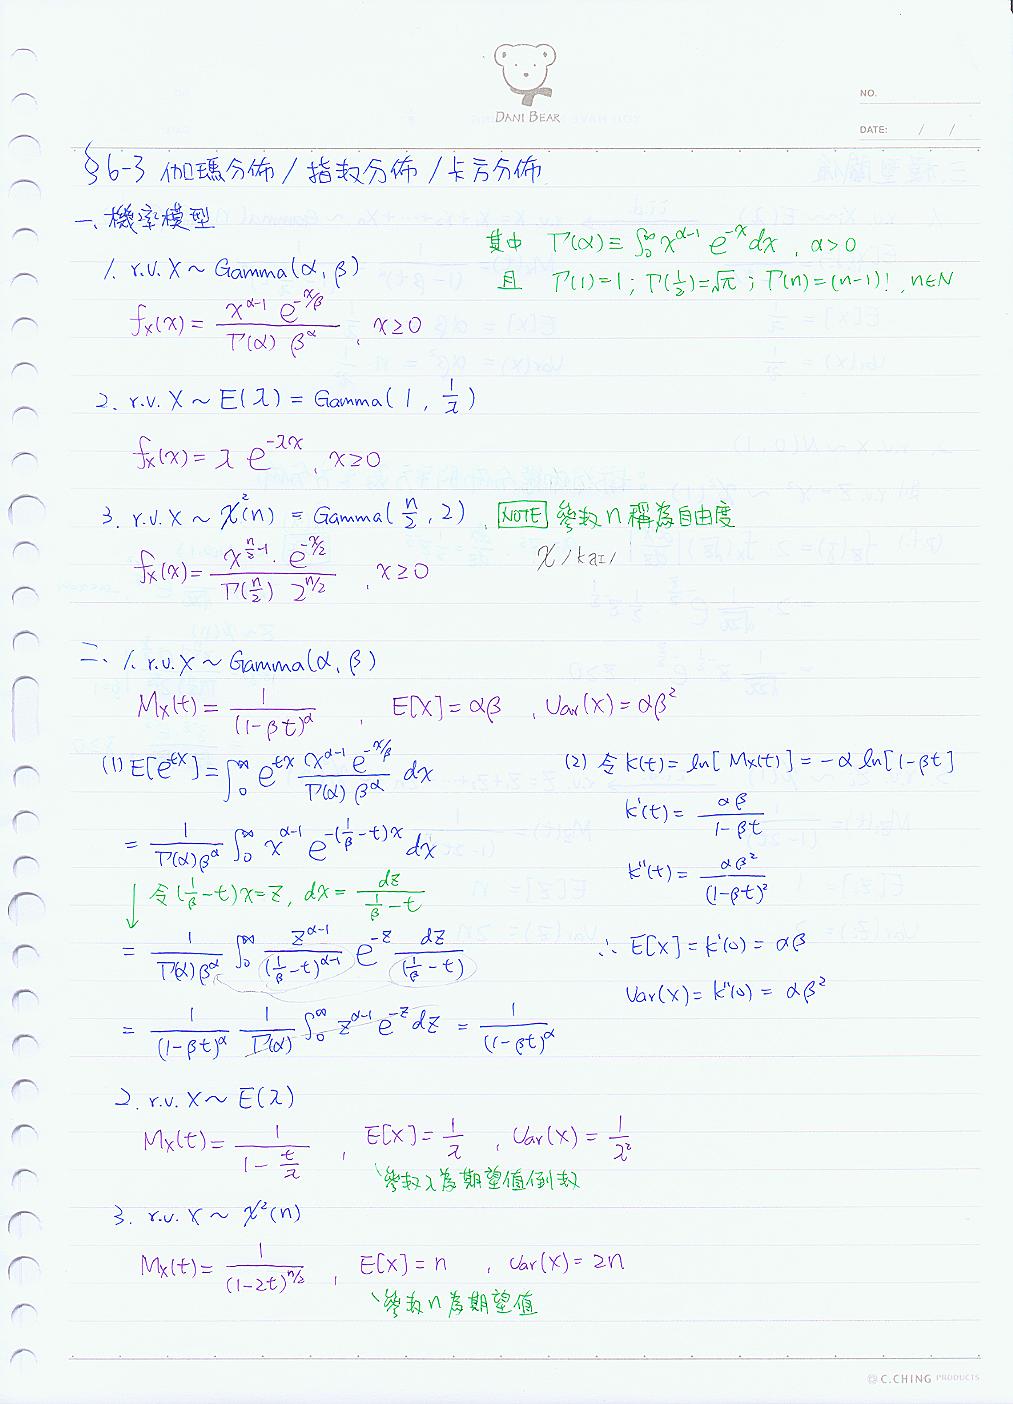 DANI BEAR
NO.
DATE: / /
§6-3 伽瑪分佈/指数分佈/卡方分佈
一、機率模型
1. r.v. X ~ Gamma(α, β)
其中 Γ(α) ≡ ∫₀^∞ x^(α-1) e^(-x) dx , α>0
且 Γ(1)=1 ; Γ(1/2)=√π ; Γ(n)=(n-1)! , n∈N
f_X(x) = x^(α-1) e^(-x/β) / (Γ(α) β^α) , x≥0
2. r.v. X ~ E(λ) = Gamma(1, 1/λ)
f_X(x) = λ e^(-λx) , x≥0
3. r.v. X ~ χ²(n) = Gamma(n/2, 2) , NOTE 參数n稱為自由度
χ /kaɪ/
f_X(x) = x^(n/2-1) · e^(-x/2) / (Γ(n/2) 2^(n/2)) , x≥0
二、1. r.v. X ~ Gamma(α, β)
M_X(t) = 1/(1-βt)^α , E[X] = αβ , Var(X) = αβ²
(1) E[e^(tX)] = ∫₀^∞ e^(tx) x^(α-1) e^(-x/β) / (Γ(α) β^α) dx
= 1/(Γ(α)β^α) ∫₀^∞ x^(α-1) e^(-(1/β-t)x) dx
令 (1/β-t)x = z, dx = dz/(1/β-t)
= 1/(Γ(α)β^α) ∫₀^∞ z^(α-1)/(1/β-t)^(α-1) e^(-z) dz/(1/β-t)
= 1/(1-βt)^α 1/Γ(α) ∫₀^∞ z^(α-1) e^(-z) dz = 1/(1-βt)^α
(2) 令 K(t) = ln[M_X(t)] = -α ln[1-βt]
K'(t) = αβ/(1-βt)
K''(t) = αβ²/(1-βt)²
∴ E[X] = K'(0) = αβ
Var(X) = K''(0) = αβ²
2. r.v. X ~ E(λ)
M_X(t) = 1/(1 - t/λ) , E[X] = 1/λ , Var(X) = 1/λ²
參数λ為期望值倒数
3. r.v. X ~ χ²(n)
M_X(t) = 1/(1-2t)^(n/2) , E[X] = n , Var(X) = 2n
參数n為期望值
C.CHING PRODUCTS